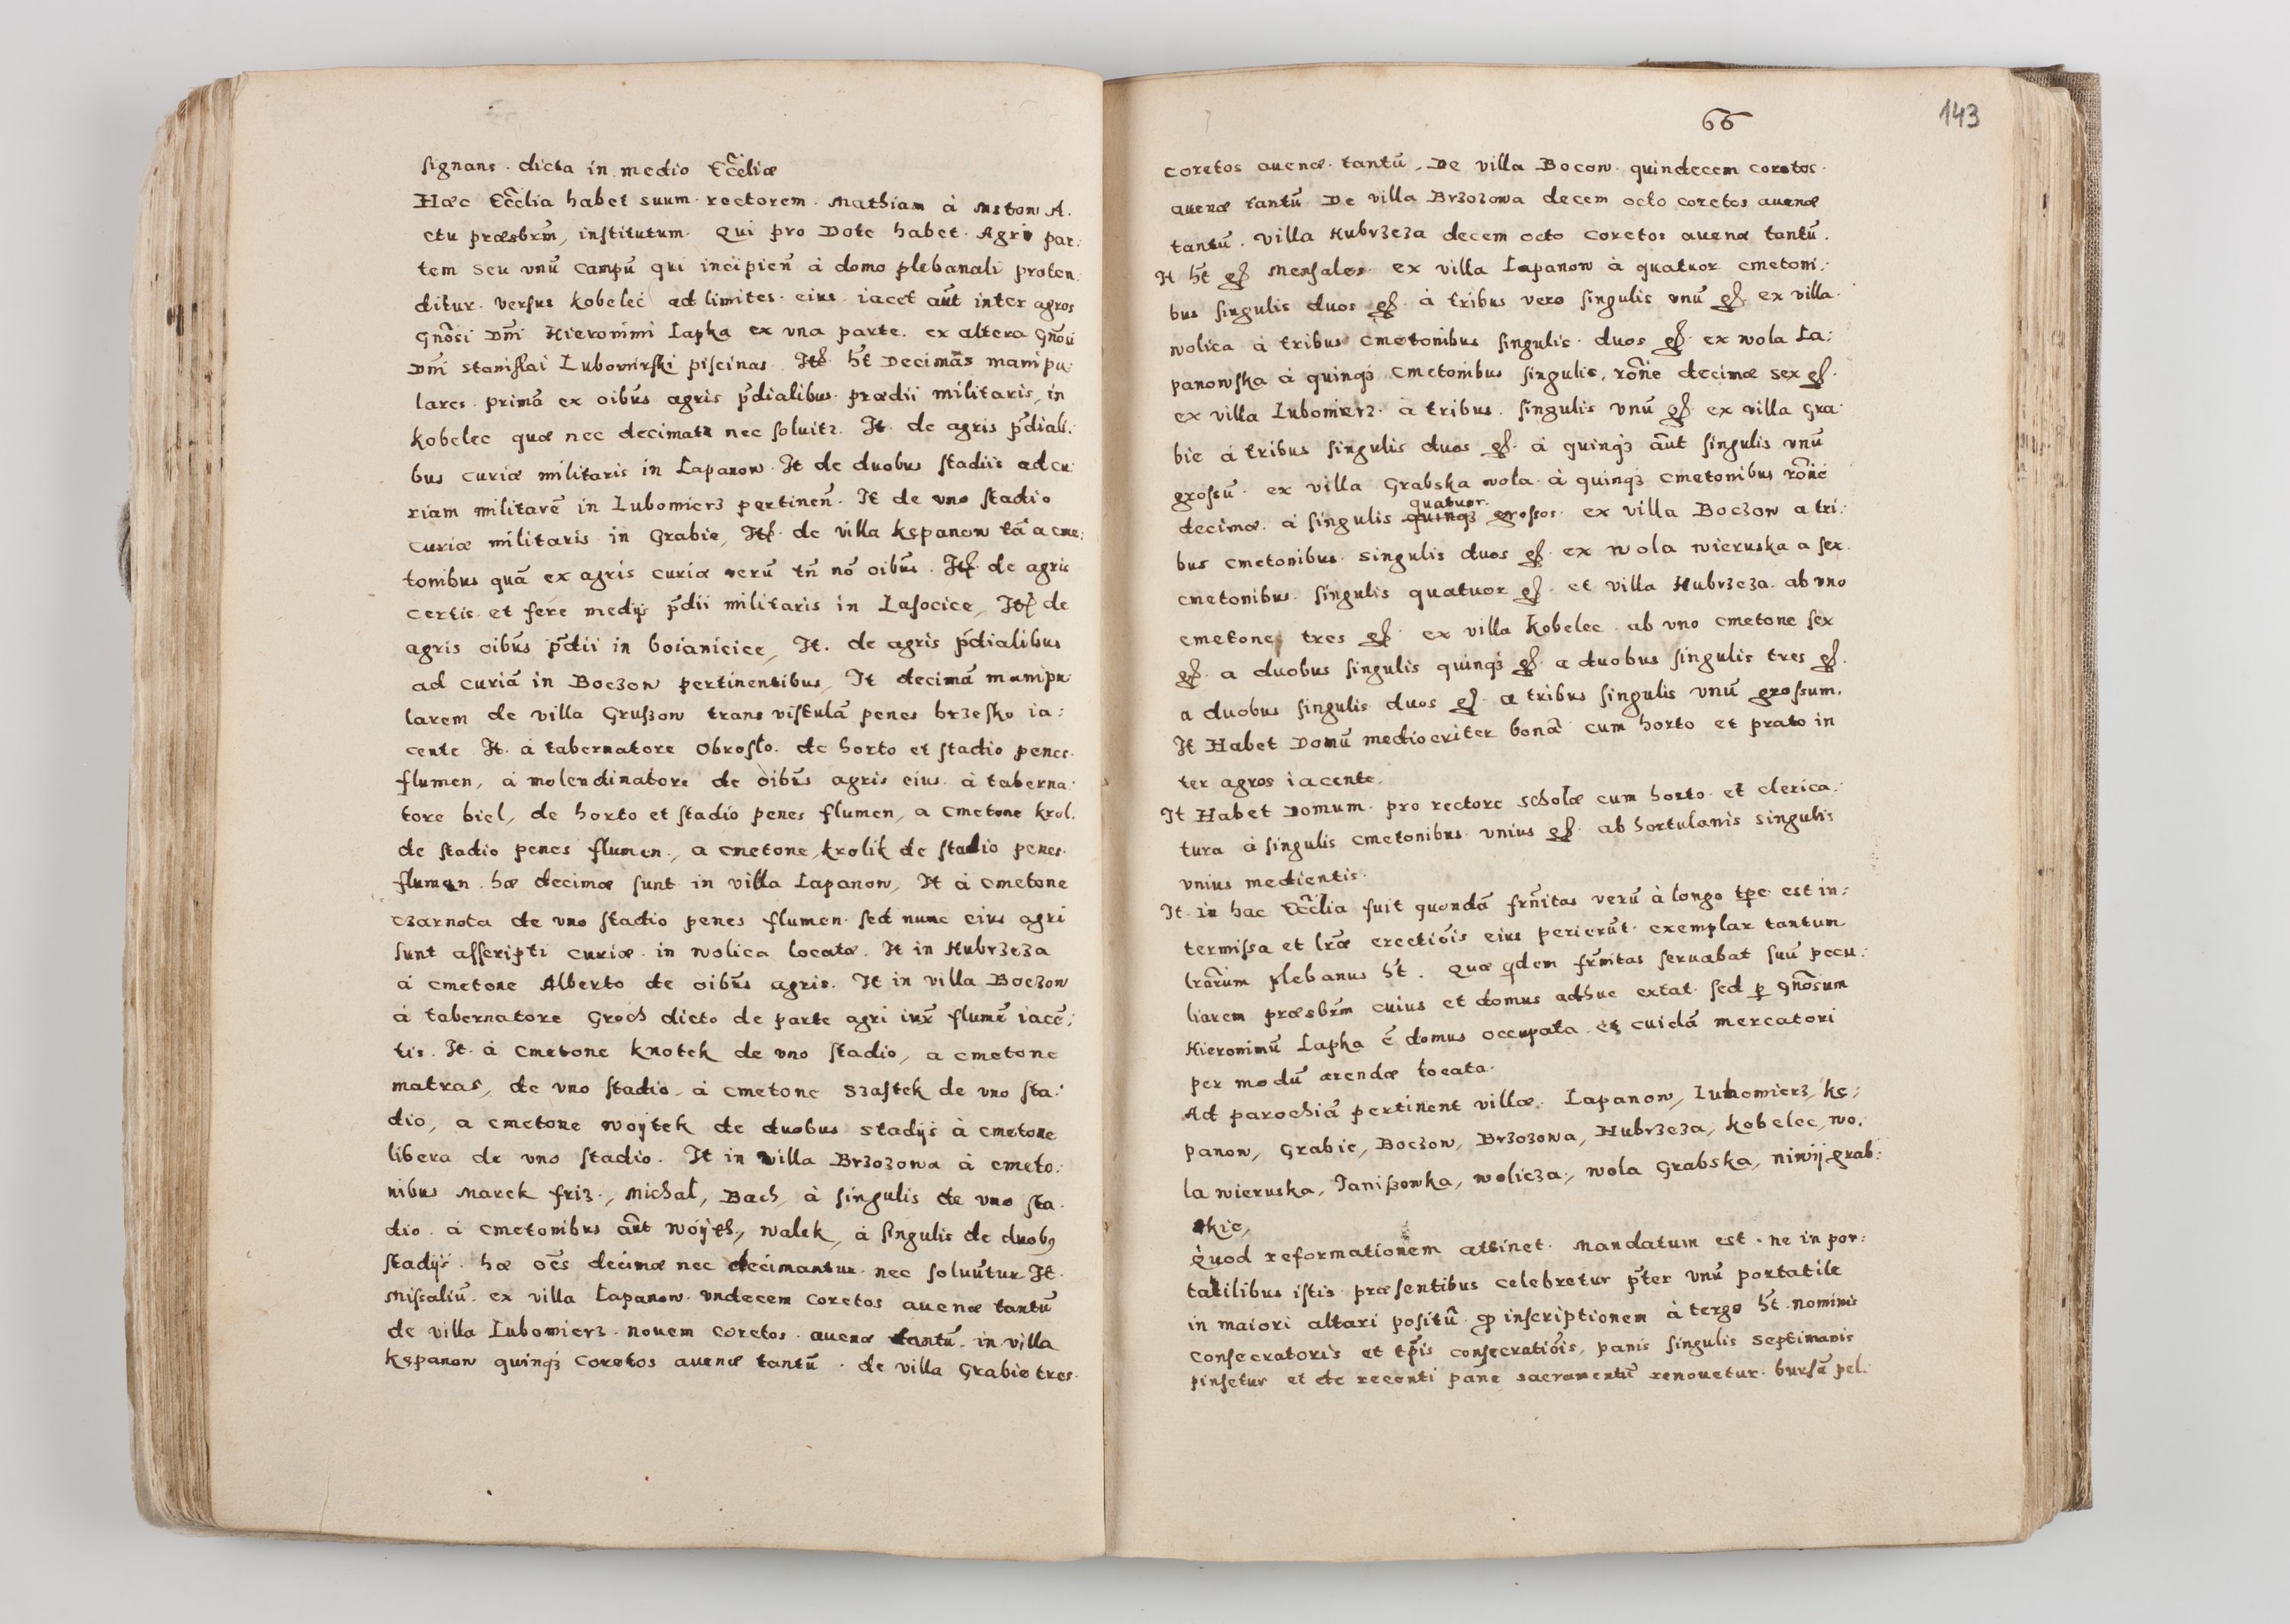 signans. dicta in medio Eccĺiæ
Hæc Eccĺia habet suum rectorem Mathiam à Mstow A.
ctu præsbrm̃, institutum. Qui pro Dote habet. Agri par:
tem seu vnũ campũ qui incipien̄ à domo plebanali proten:
ditur. versus Kobelec ad limites. eius iacet aũt inter agros
Gñosi Dñi Hieronimi Lapka ex vna parte. ex altera Gñosi
Dñi Stanislai Lubomirski piscinas. It ht̃ Decimas manipu:
lares. primã ex oibũs agris p̃dialibus. prædii militaris, in
Kobelec quæ nec decimatr nec soluitr. It. de agris p̃diali:
bus curiæ militaris in Lapanow. It de duobus stadiis ad cu:
riam militarẽ in Lubomierz pertinen̄. It de vno stadio
curiæ militaris in Grabie, It. de villa Kępanow tã a cme:
tonibus quã ex agris curiæ verũ tñ nõ oibũs. It. de agris
certis et fere medijs p̃dii militaris in Lasocice, It de
agris oibũs p̃dii in boianicice, It. de agris p̃dialibus
ad curiã in Boczow pertinentibus, It decimã manipu:
larem de villa Gruszow trans vistulã penes brzesko ia:
cente It. à tabernatore Obrosło. de horto et stadio penes.
flumen, à molendinatore de òibũs agris eius. à taberna:
tore biel, de horto et stadio penes flumen, a cmetone krol.
de stadio penes flumen., a cmetone, krolik de stadio penes.
flumen. hæ decimæ sunt in villa Lapanow, It à cmetone
czarnota de vno stadio penes flumen. sed nunc eius agri
sunt asscripti curiæ. in wolica locatæ. It in Hubrzeza
à cmetone Alberto de oibũs agris. It in villa Boczow
à tabernatore Groch dicto de parte agri iuxͭ flumẽ iacẽ:
tis. It. à cmetone knotek de vno stadio, a cmetone
matras, de vno stadio. à cmetone szastek de vno sta:
dio, a cmetone woÿtek de duobus stadijs à cmetone
libera de vno stadio. It in villa Brzozowa à cmeto:
nibus Marek friz., Michał, Bach, à singulis de vno sta.
dio. à cmetonibus aũt Wóÿth, walek, à singulis de duobꝰ
stadijs. hæ oẽs decimæ nec decimantur. nec soluũtur It.
Missaliũ. ex villa Lapanow. vndecem coretos auenæ tantũ
de villa Lubomierz. nouem coretos. auenæ tantũ. in villa
Kępanow quinqȝ coretos auenæ tantũ. de villa Grabie tres.
66
143
coretos auenæ. tantũ. De villa Bocow. quindecem coretos.
auenæ tantũ De villa Brzozowa decem octo coretos auenæ
tantũ. villa Hubrzeza decem octo coretos auenæ tantũ.
It ht̃ gſ Mensales. ex villa Lapanow à quatuor cmetoni:
bus singulis duos gſ. à tribus vero singulis vnũ gſ. ex villa.
wolica à tribus cmetonibus singulis. duos gſ. ex wola La:
panowska à quinqȝ cmetonibus singulis, rõne decimæ sex gſ.
ex villa Lubomierz. à tribus. singulis vnũ gſ. ex villa Gra:
bie à tribus singulis duos gſ. à quinqȝ aũt singulis vnũ
grossũ. ex villa Grabska wola. à quinqȝ cmetonibus rõne
quatuor.
decimæ. à singulis quinqȝ grossos. ex villa Boczow a tri:
bus cmetonibus. singulis duos gſ. ex wola wieruska a sex.
cmetonibus. singulis quatuor gſ. et villa Hubrzeza. ab vno
cmetone, tres gſ. ex villa Kobelec. ab vno cmetone sex
gſ. a duobus singulis quinqȝ gſ. a duobus singulis tres gſ.
a duobus singulis duos gſ. a tribus singulis vnũ grossum.
It Habet Domũ mediocriter bonã cum horto et prato in
ter agros iacente.
It Habet Domum pro rectore scholæ cum horto. et clerica:
tura à singulis cmetonibus. vnius gſ. ab hortulanis singulis
vnius medientis.
It. in hac Eccĺia fuit quondã frñitas verũ à longo tp̃e est in:
termissa et lr̃æ erectiõis eius perierũt. exemplar tantum
lrãrum plebanus ht̃. Quæ qdem frñitas seruabat suũ pecu:
liarem præsbrm̃ cuius et domus adhuc extat. sed ꝑ gñosum
Hieronimũ Lapka ẽ domus occupata. et cuidã mercatori
per modũ arendæ locata.
Ad parochiã pertinent villæ. Lapanow, Lubomierz, Kę:
panow, Grabie, Boczow, Brzozowa, Hubrzeza, Kobelec, wo:
la wieruska, Janiszowka, wolicza, wola Grabska, niwÿ grab:
skie,
Quod reformationem attinet. Mandatum est. ne in por:
tatilibus istis præsentibus celebretur p̃ter vnũ portatile
in maiori altari positũ ꝙ inscriptionem à tergo ht̃. nominis
consecratoris et tp̃is consecratiõis, panis singulis septimanis
pinsetur et de recenti pane sacramentũ renouetur. bursã pel: